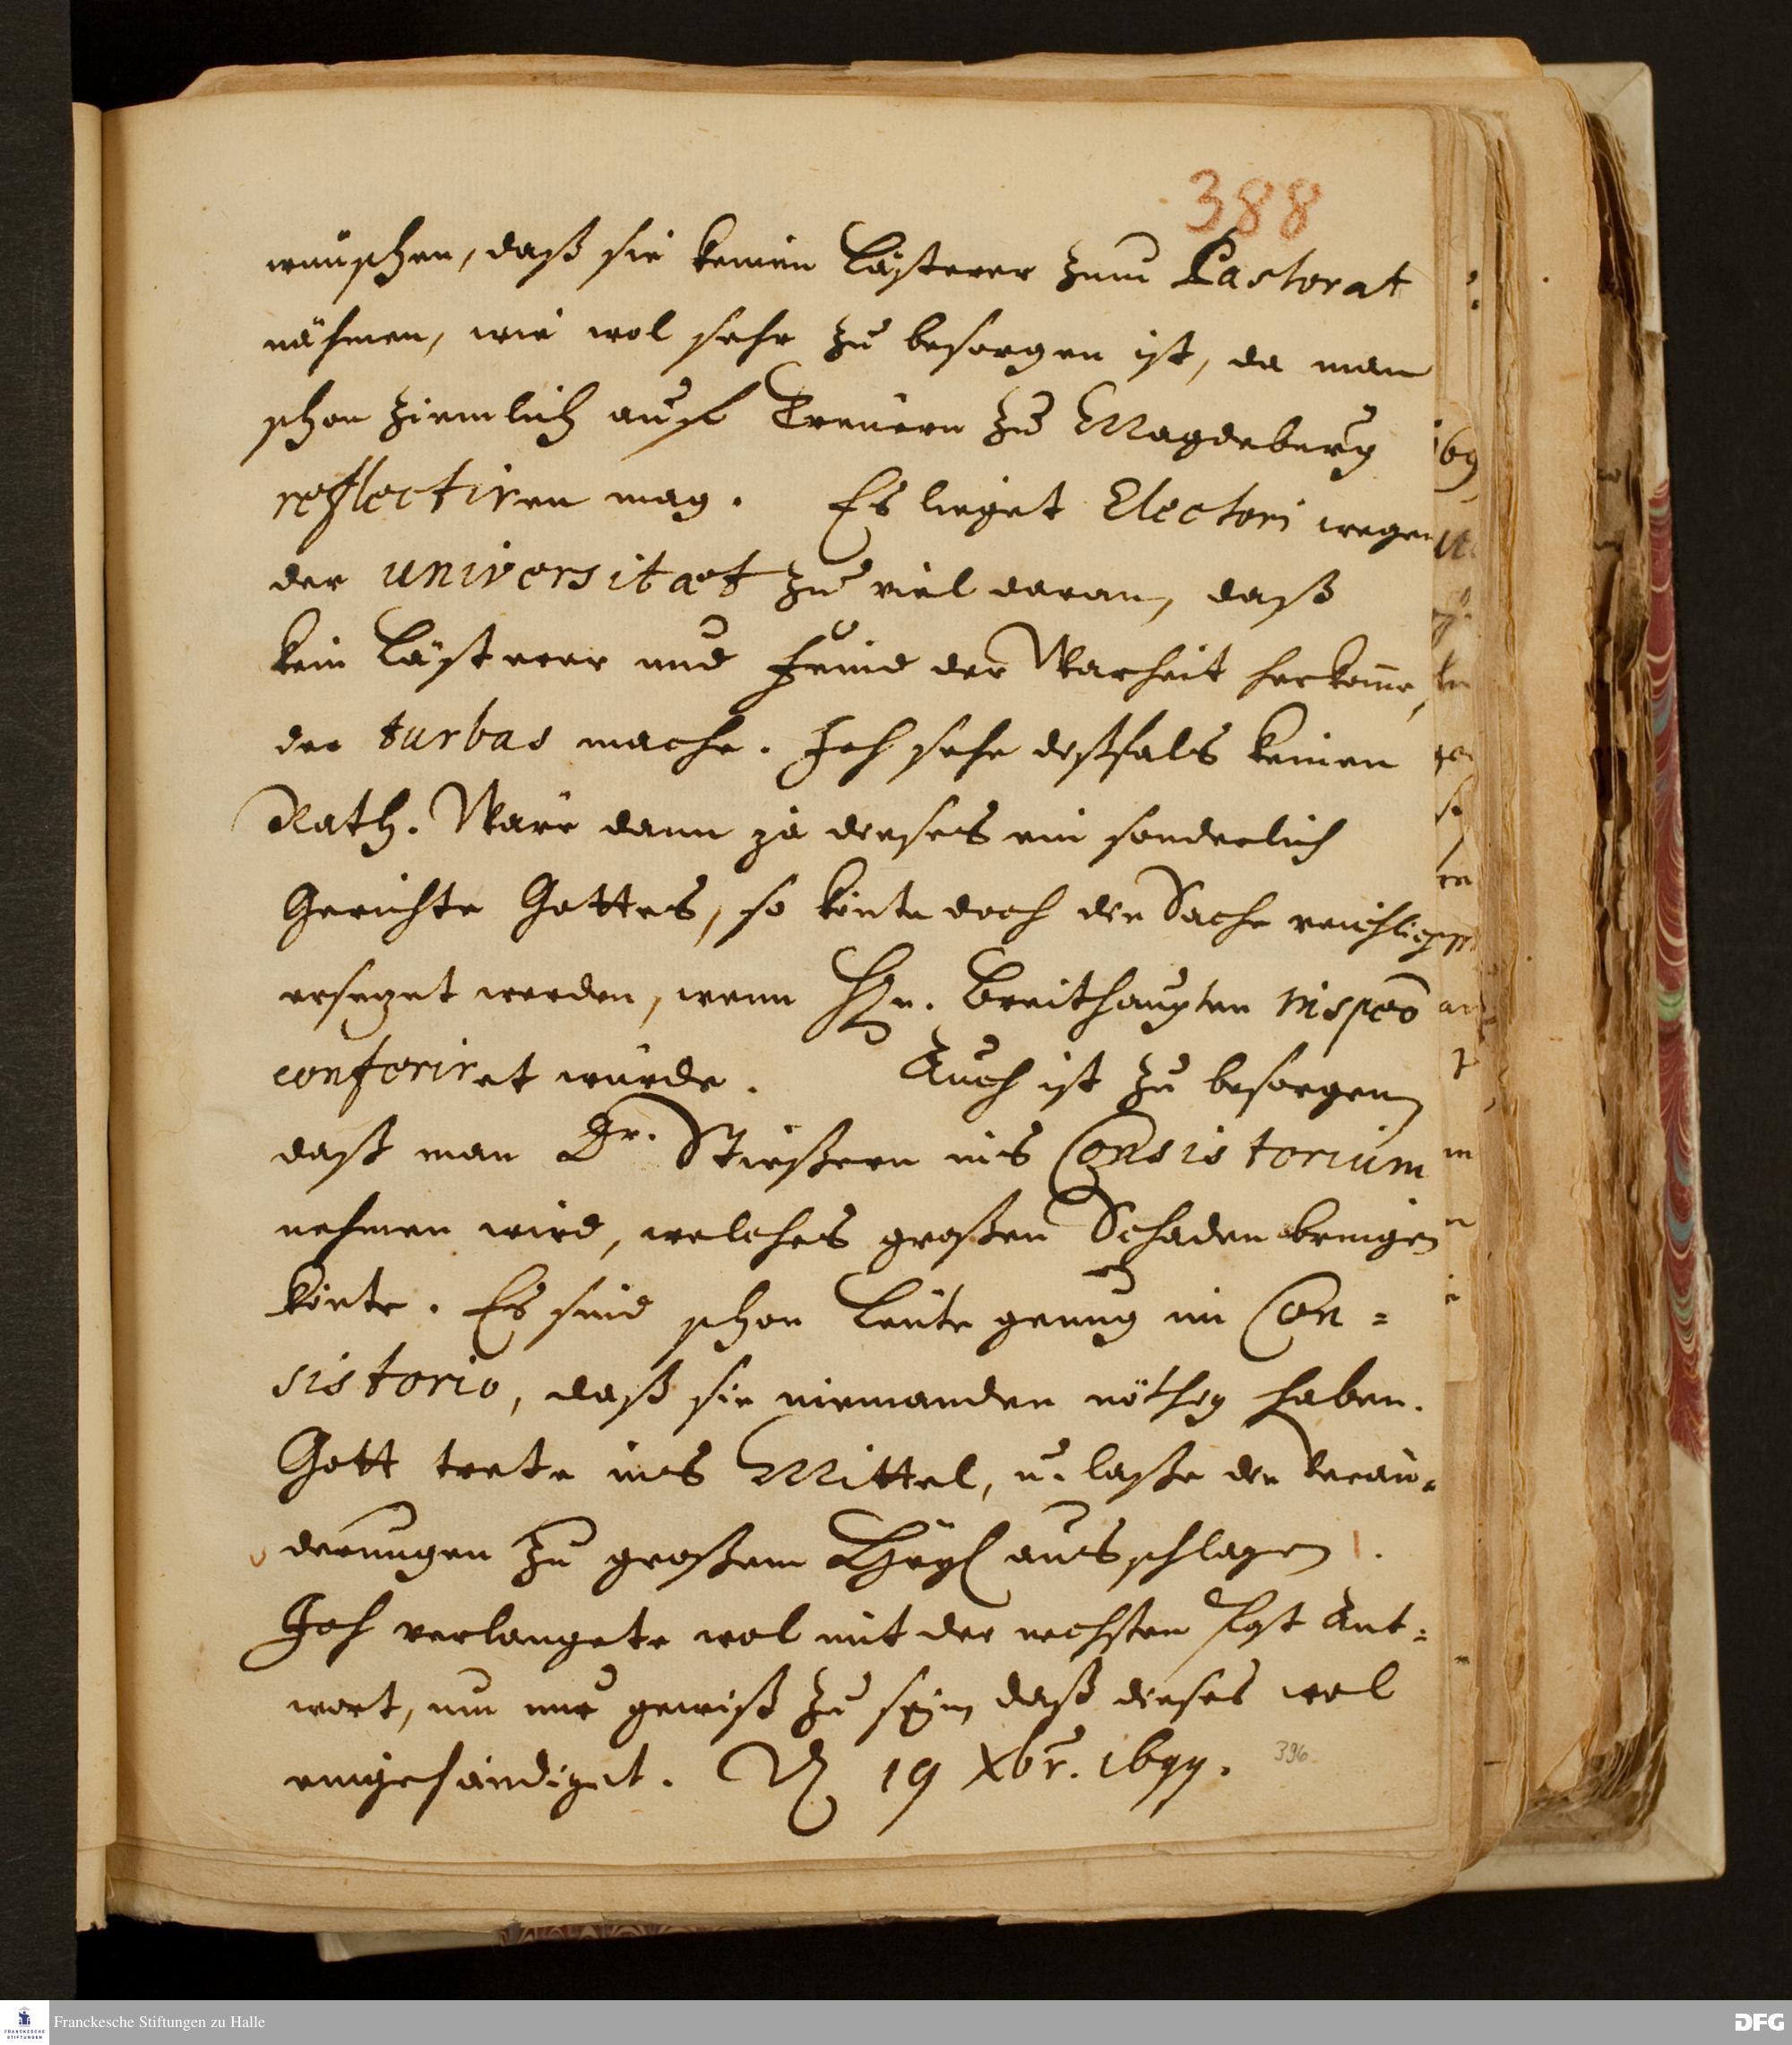 388
wünschen, daß sie keinen Lästerer zum Pastorat
nähmen, wie wol sehr zu besorgen ist, da man
schon ziemlich auf Treuern zu Magdeburg
reflectiren mag. Es lieget Electori wegen
der universitaet zu viel daran, daß
kein Lästerer und Feind der Warheit herkom̄e,
der turbas mache. Ich sehe deßfals keinen
Rath. Wäre dann ja dieses ein sonderlich
Gerichte Gottes, so könte doch die Sache reichlich
ersezet werden, wenn Hn. Breithaupten inspeō
conferiret würde. Auch ist zu besorgen
daß man Dr. Stießern ins Consistorium
nehmen wird, welches großen Schaden bringen
könte. Es sind schon Leute genug im Con=
sistorio, daß sie niemanden nöthig haben.
Gott trete ins Mittel, u. laße die Verän=
derungen zu großem ausschlagen.
Ich verlangete wol mit der nechsten Post Ant=
wort, um nur gewiß zu seyn daß dieses wol
eingehändiget. 19 Xbr. 1699.
396
Franckesche Stiftungen zu Halle
FRANCKESCHE
STIFTUNGEN
DFG